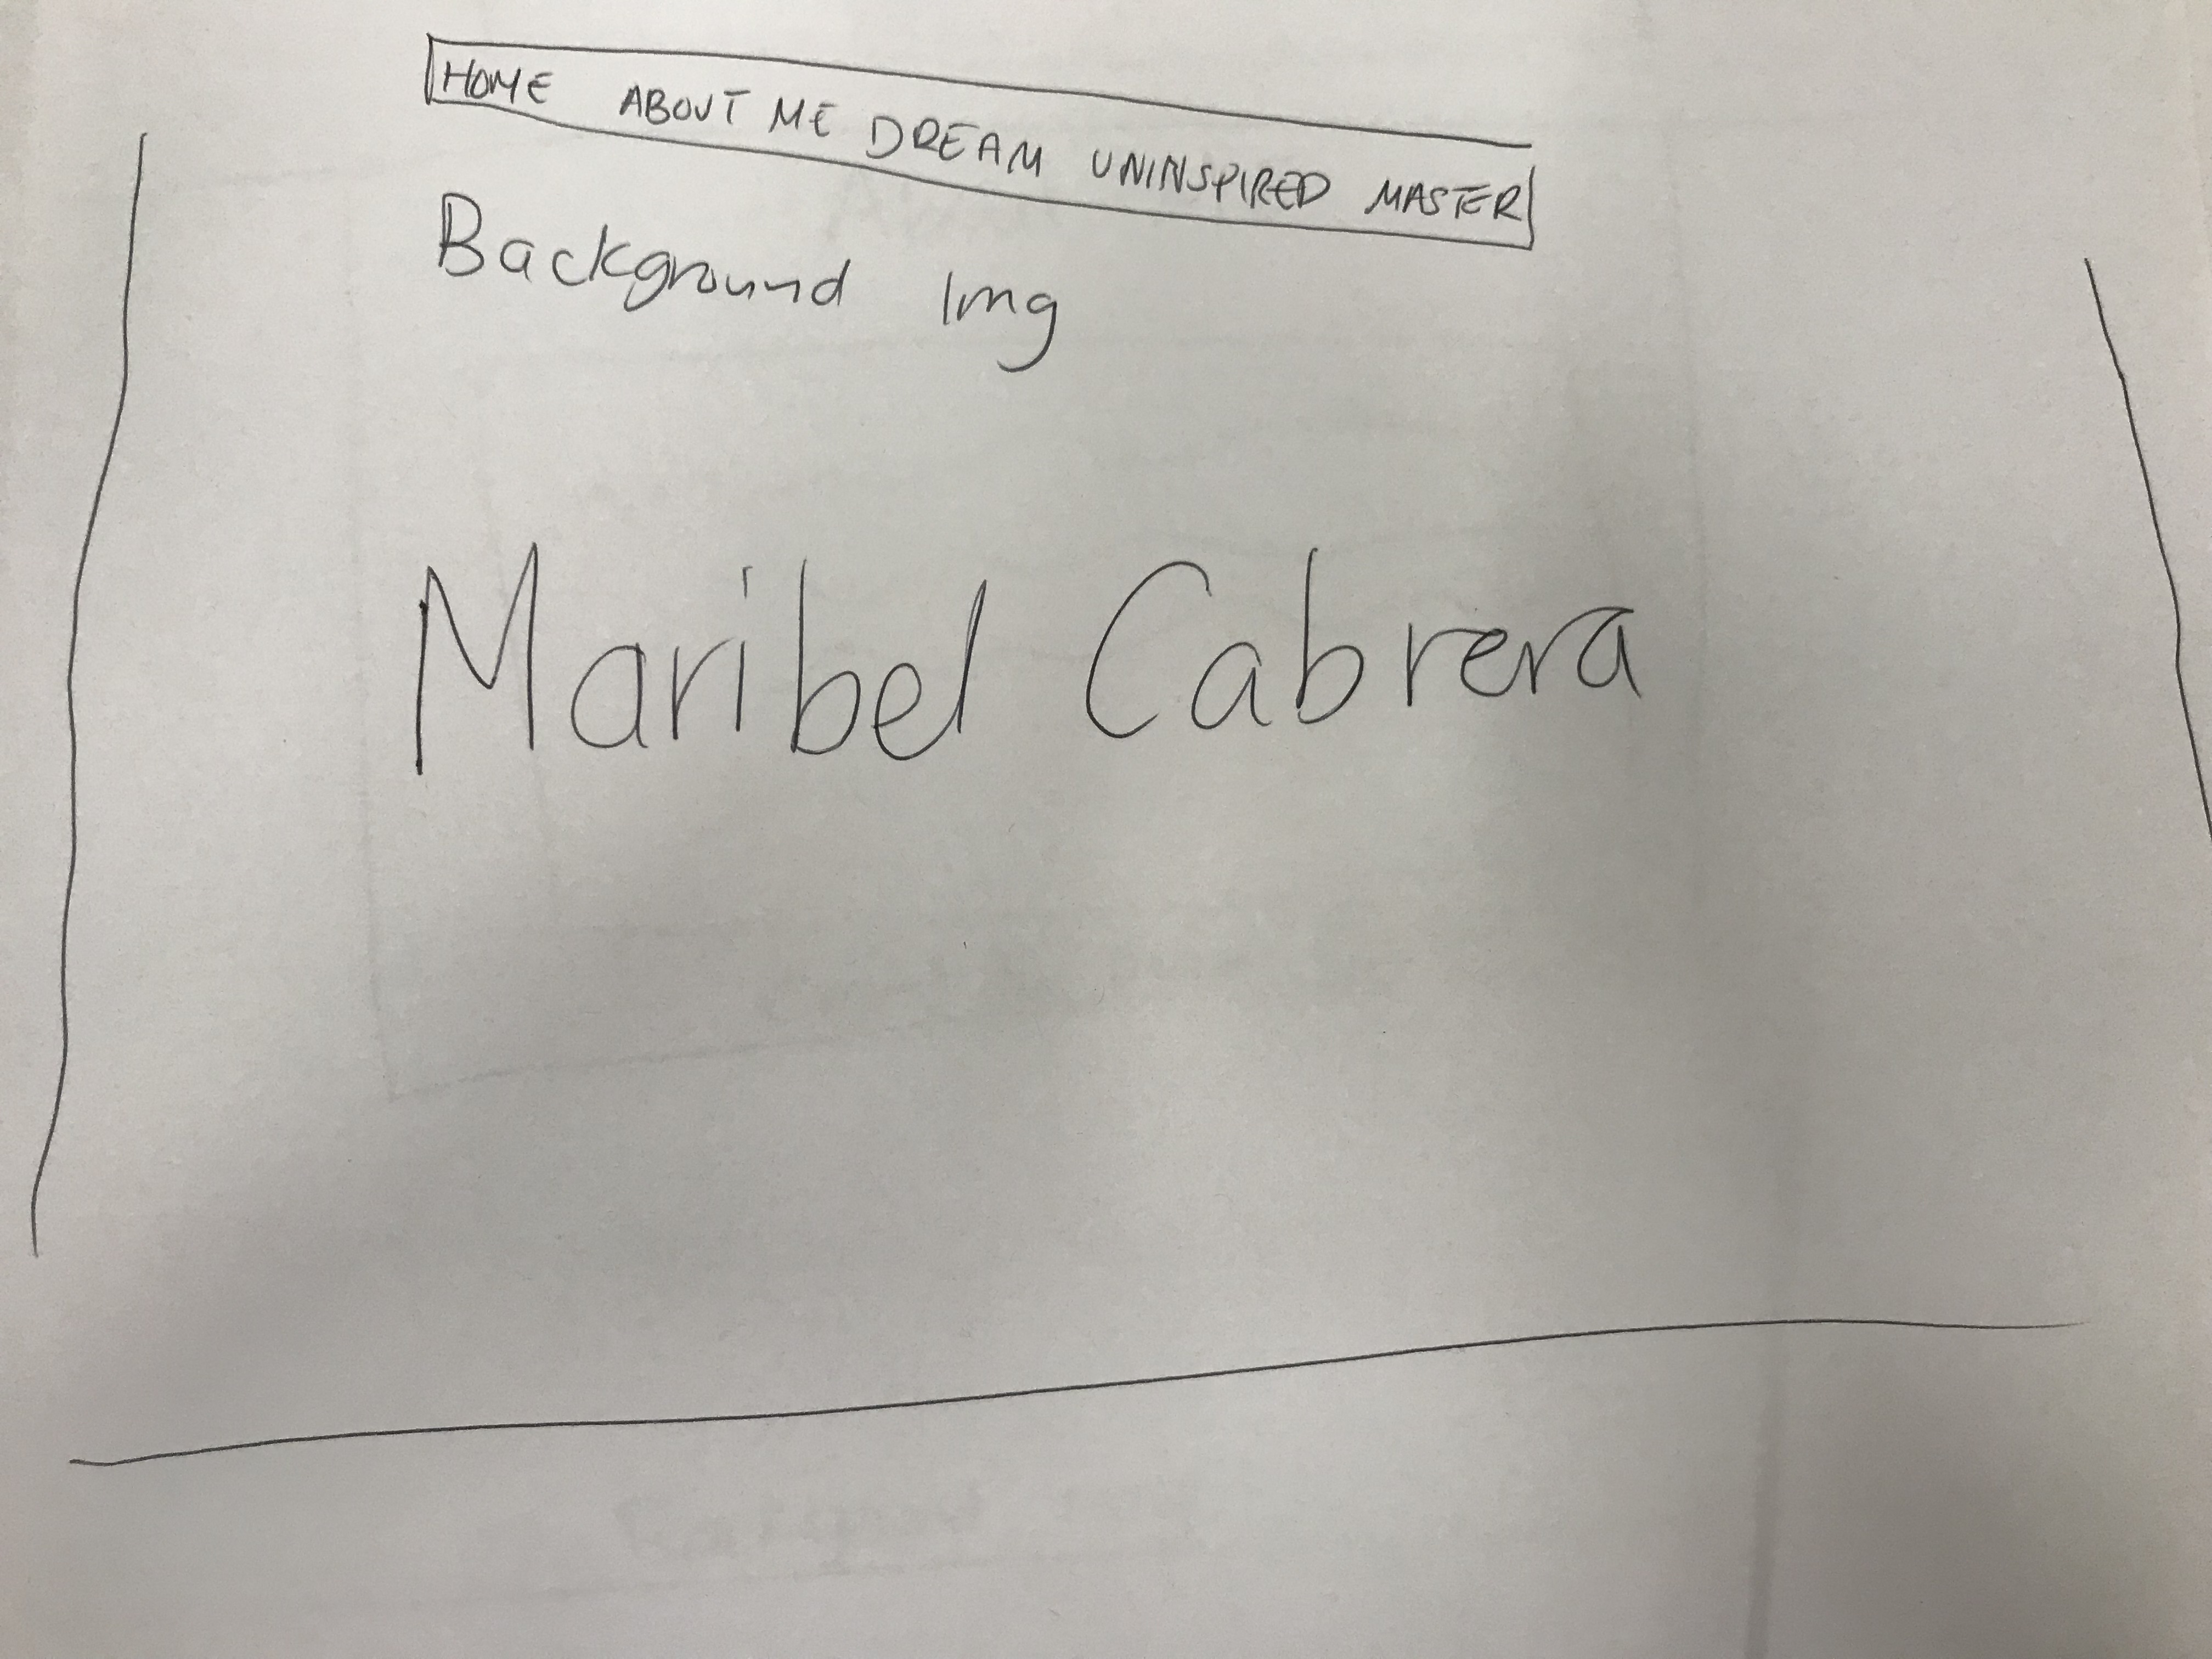 HOME ABOUT ME DREAM UNINSPIRED MASTER
Background Img
Maribel Cabrera